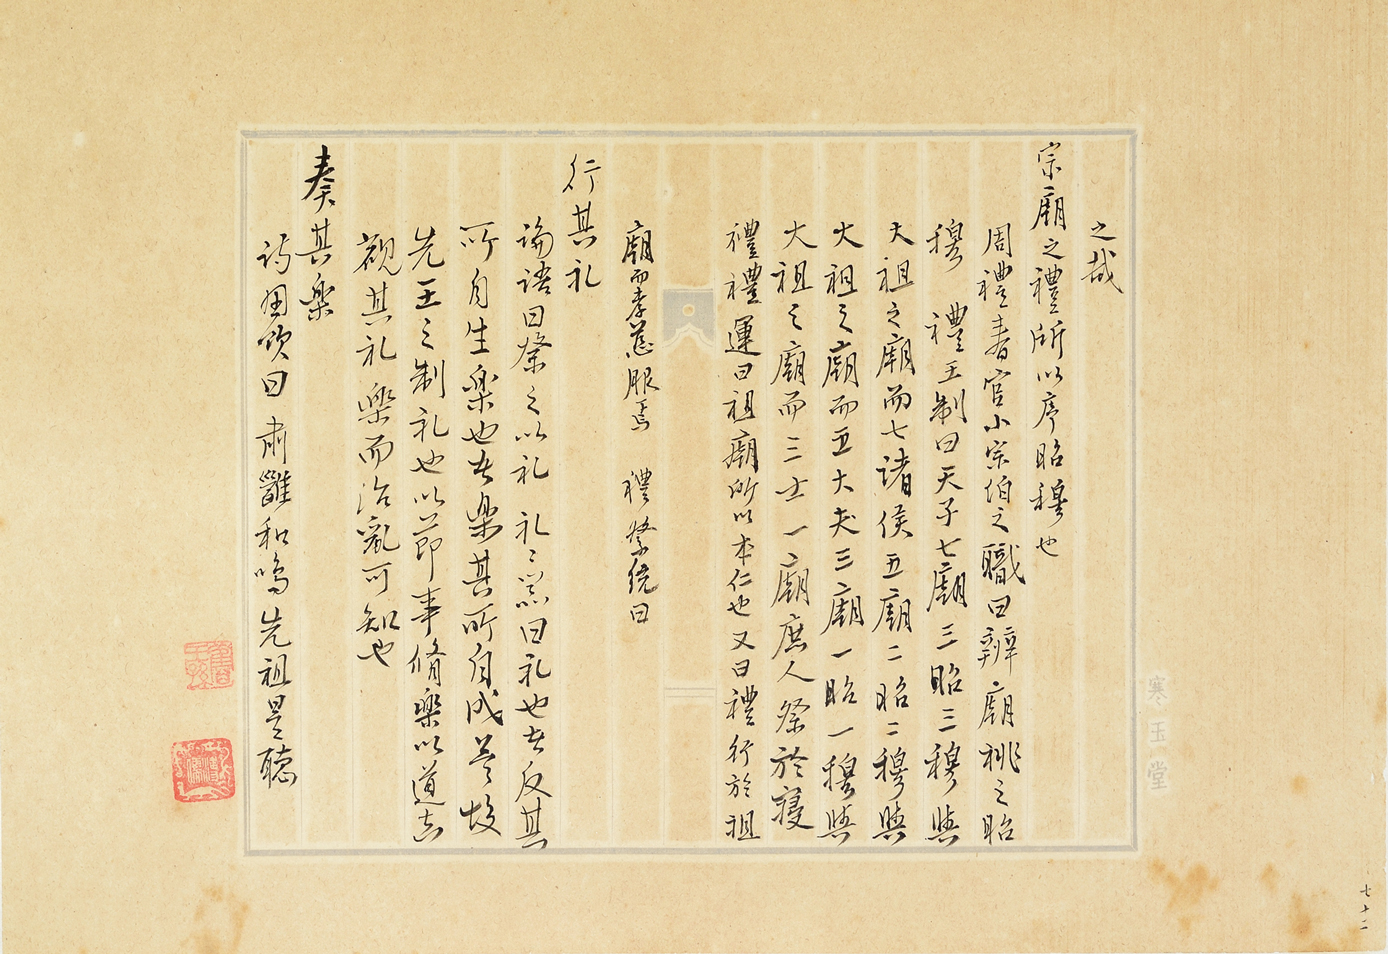 之哉
宗廟之禮所以序昭穆也
周禮春官小宗伯之職曰辨廟祧之昭
穆 禮王制曰天子七廟三昭三穆與
大祖之廟而七諸侯五廟二昭二穆與
大祖之廟而五大夫三廟一昭一穆與
大祖之廟而三士一廟庶人祭於寢
禮禮運曰祖廟所以本仁也又曰禮行於祖
廟而孝慈服焉 禮祭統曰
行其礼
論語曰祭之以礼 礼礼器曰礼也者反其
所自生樂也者樂其所自成是故
先王之制礼也以節事脩樂以道志
觀其礼樂而治亂可知也
奏其樂
詩周頌曰 肅雝和鳴先祖是聽
寒玉堂
七十二